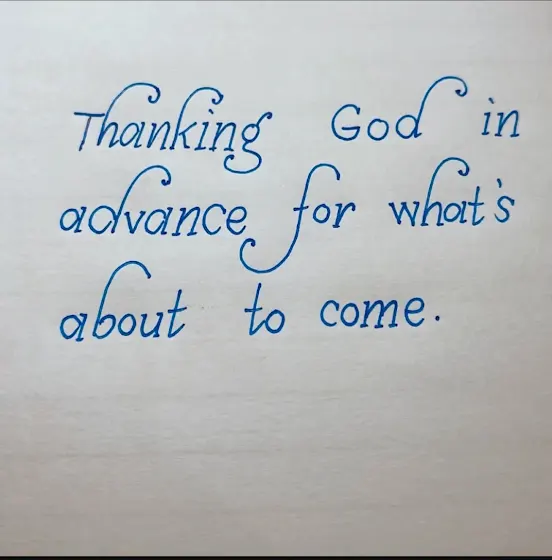 Thanking God in
advance for what's
about to come.